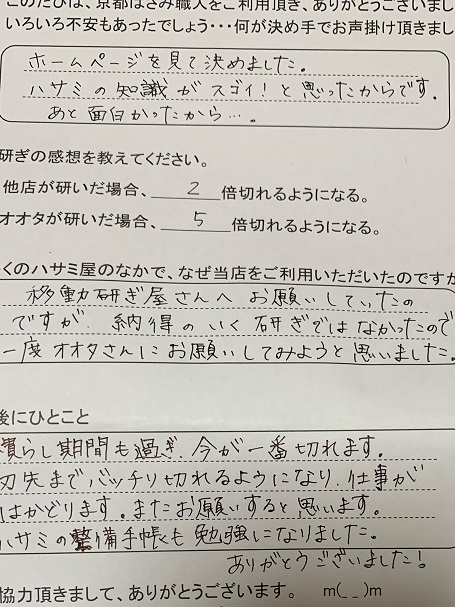 このたびは、京都はさみ職人をご利用頂き、ありがとうございまし
いろいろ不安もあったでしょう・・・何が決め手でお声掛け頂きまし
ホームページを見て決めました。
ハサミの知識がスゴイ！と思ったからです。
あと面白かったから…。
研ぎの感想を教えてください。
他店が研いだ場合、 2 倍切れるようになる。
オオタが研いだ場合、 5 倍切れるようになる。
くのハサミ屋のなかで、なぜ当店をご利用いただいたのですか
移動研ぎ屋さんへお願いしていたの
ですが、納得のいく研ぎではなかったので
一度オオタさんにお願いしてみようと思いました。
後にひとこと
慣らし期間も過ぎ、今が一番切れます。
刃先までバッチリ切れるようになり、仕事が
はかどります。またお願いすると思います。
ハサミの整備手帳も勉強になりました。
ありがとうございました！
協力頂きまして、ありがとうございます。 m(_ _)m